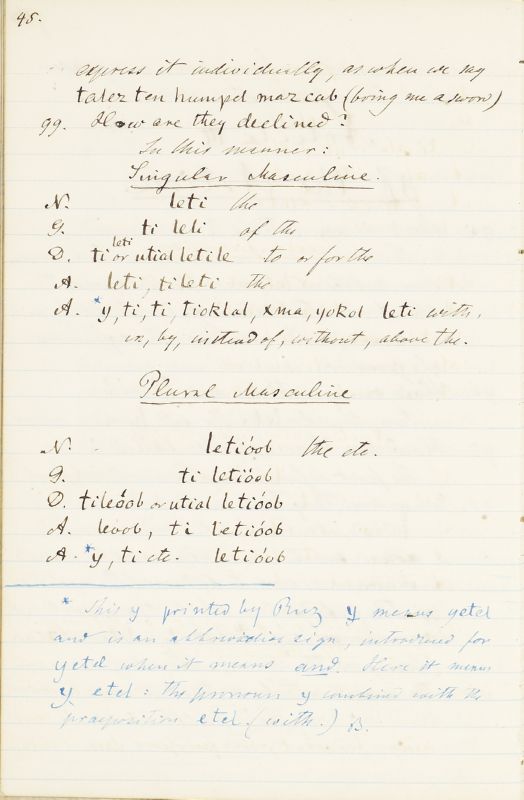 48.
express it individually, as when we say
talez ten humpel mazcab (bring me a sword)
99. How are they declined?
In this manner:
Singular Masculine.
N. leti the
G. ti leti of the
D. ti leti or utial letile to or for the
A. leti, ti leti the
A. *y, ti, ti, tioklal, xma, yokol leti with,
in, by, instead of, without, above the.
Plural Masculine
N. letióob the etc.
G. ti letióob
D. tileóob or utial letióob
A. leoob, ti letióob
A. *y, ti etc. letióob
* This y printed by Ruz y means yetel
and is an abbreviation sign, introduced for
yetel when it means and. Here it means
y etel: the pronoun y combined with the
praeposition etel (with.) B.